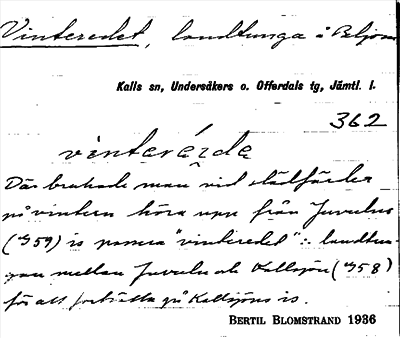 Vinteredet, landtunga å Baljom
Kalls sn, Undersåkers o. Offerdals tg, Jämtl. l.
362
vinterǽrda
Där brukade man vid slädfärder
på vintern köra upp från Juvuln
(959) is namn "vinteredet": landtun-
gan mellan Juvuln och Kallsjön (958)
för att fortsätta på Kallsjöns is.
BERTIL BLOMSTRAND 1936